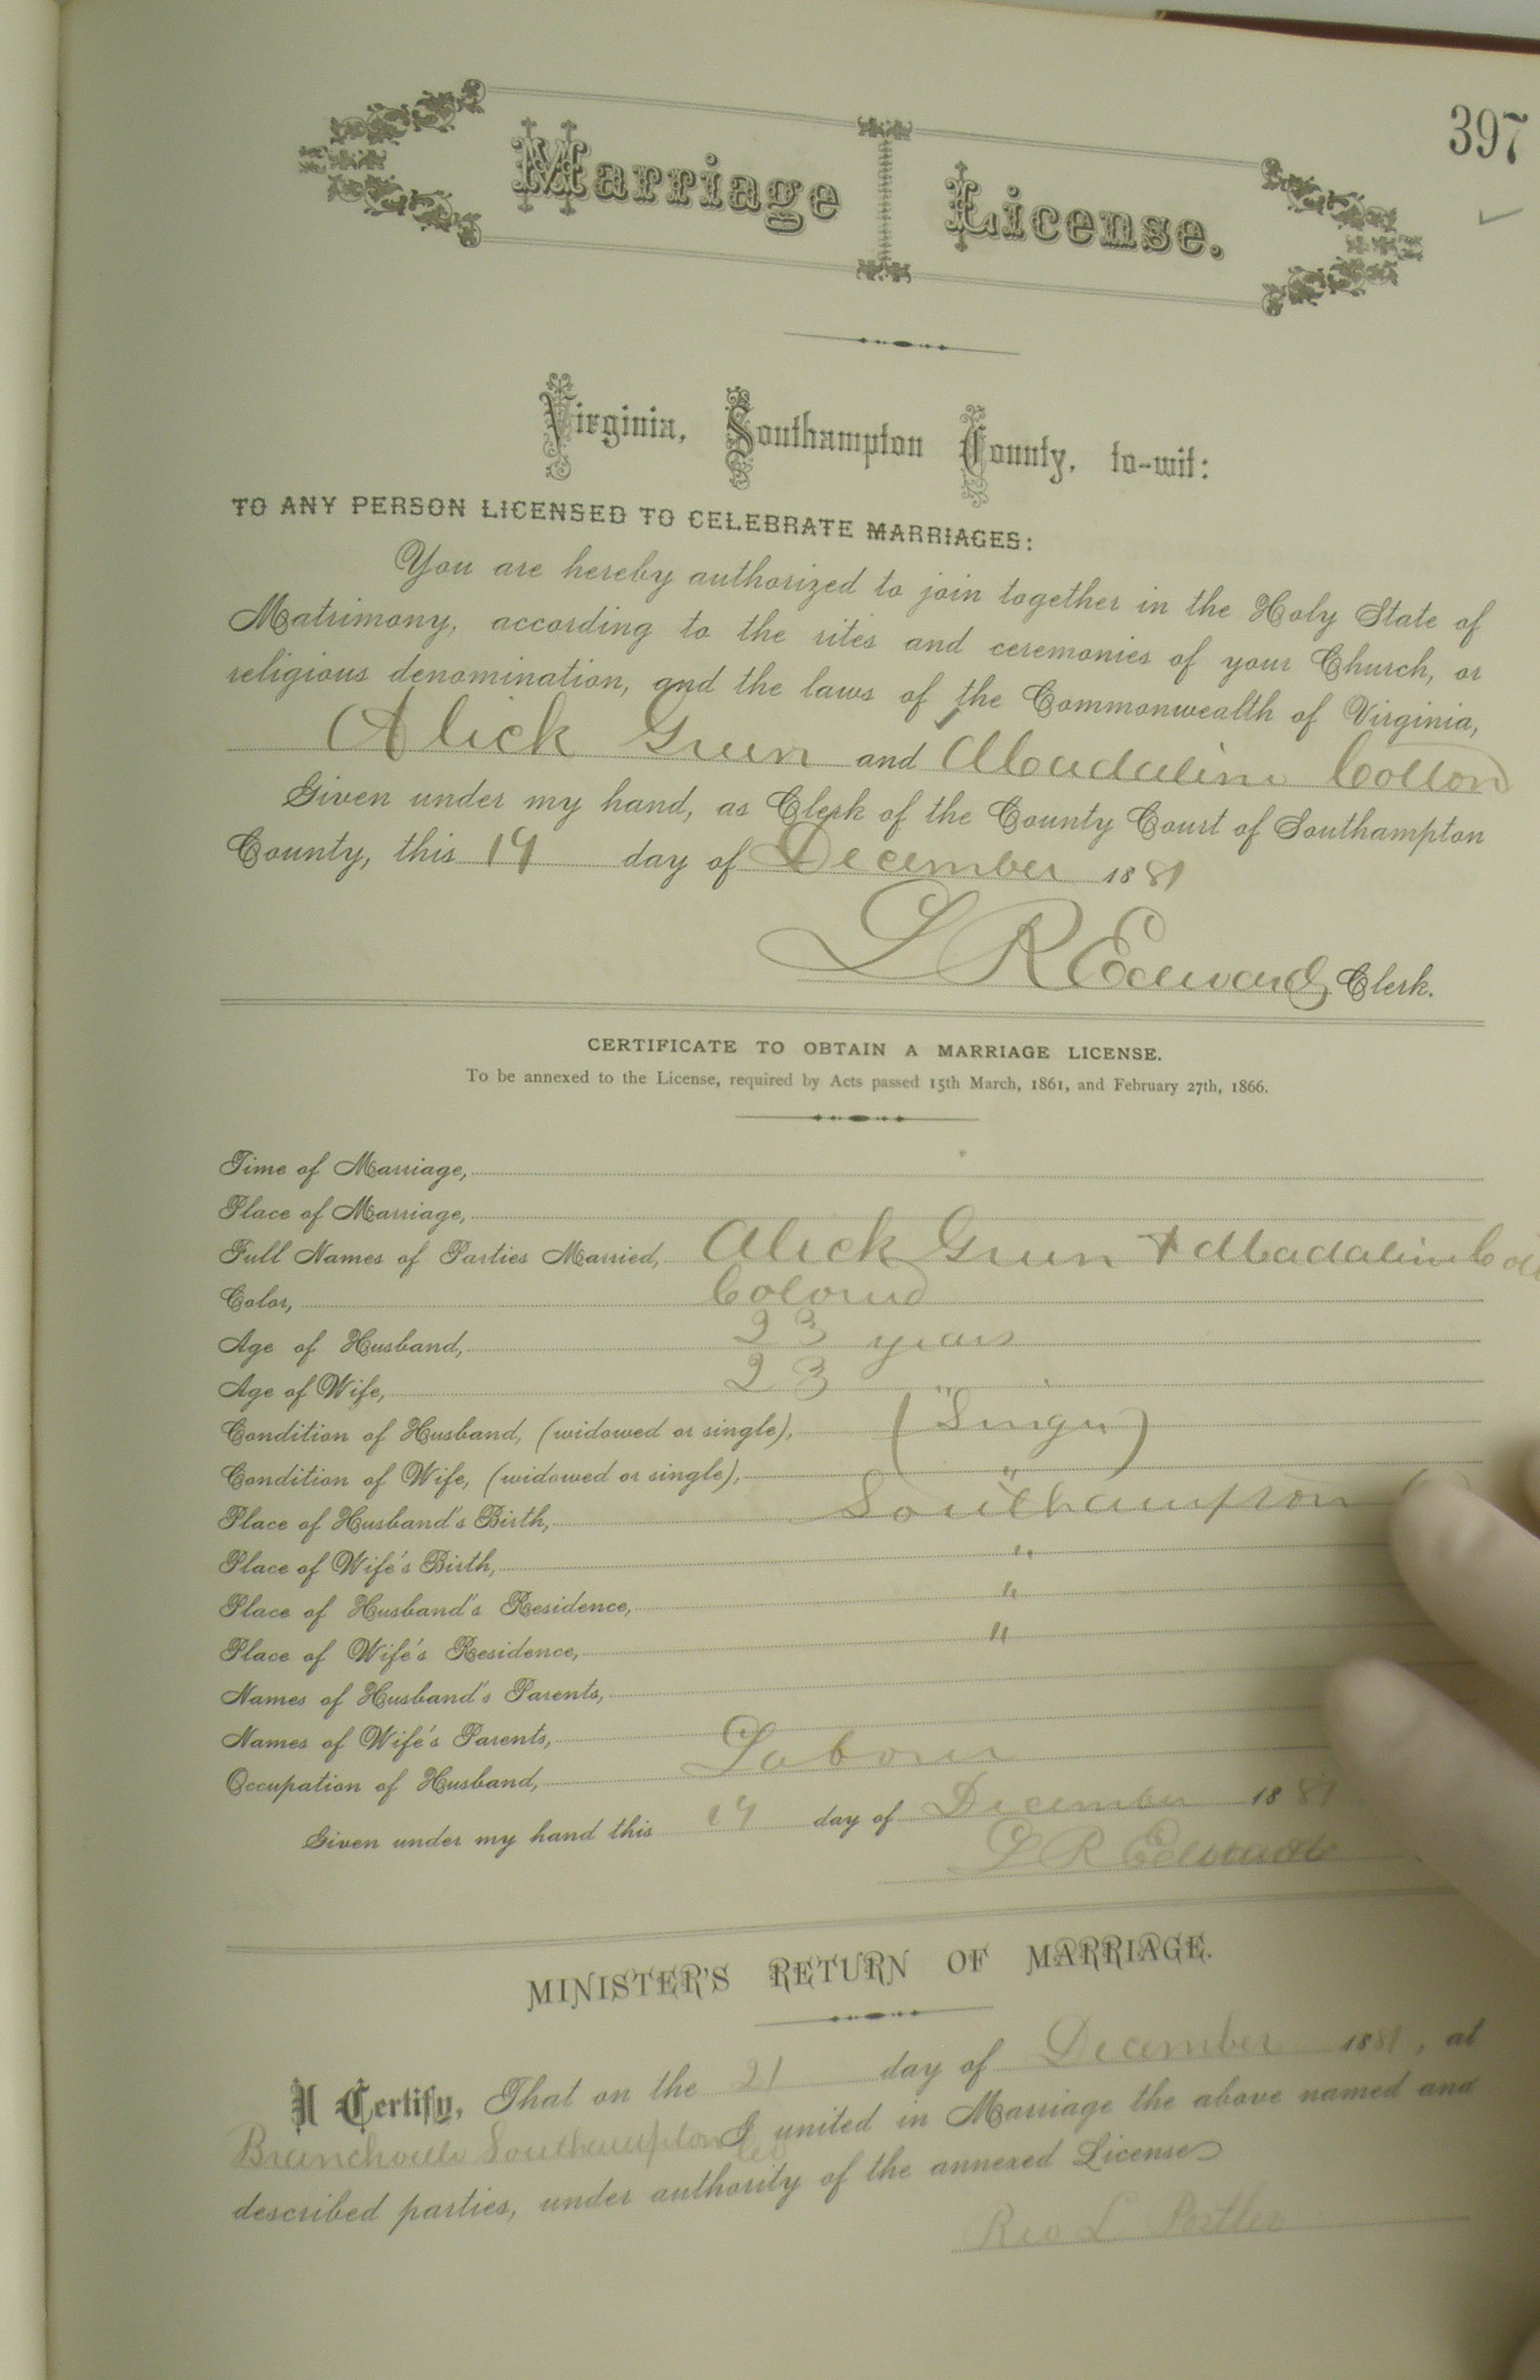 397
Marriage License.
Virginia, Southampton County, to-wit:
TO ANY PERSON LICENSED TO CELEBRATE MARRIAGES:
You are hereby authorized to join together in the Holy State of
Matrimony, according to the rites and ceremonies of your Church, or
religious denomination, and the laws of the Commonwealth of Virginia,
Alick Green and Madaline Cotton
Given under my hand, as Clerk of the County Court of Southampton
County, this 19 day of December 1881
L R Edwards Clerk.
CERTIFICATE TO OBTAIN A MARRIAGE LICENSE.
To be annexed to the License, required by Acts passed 15th March, 1861, and February 27th, 1866.
Time of Marriage,
Place of Marriage,
Full Names of Parties Married, Alick Green & Madaline
Color, Colored
Age of Husband, 23 years
Age of Wife, 23 "
Condition of Husband, (widowed or single), (Single)
Condition of Wife, (widowed or single), "
Place of Husband's Birth, Southampton
Place of Wife's Birth, "
Place of Husband's Residence, "
Place of Wife's Residence, "
Names of Husband's Parents,
Names of Wife's Parents,
Occupation of Husband, Laborer
Given under my hand this 19 day of December 1881
L R Edwards
MINISTER'S RETURN OF MARRIAGE.
I Certify, That on the 21 day of December 1881, at
Branchville Southampton Co I united in Marriage the above named and
described parties, under authority of the annexed License
Rev L